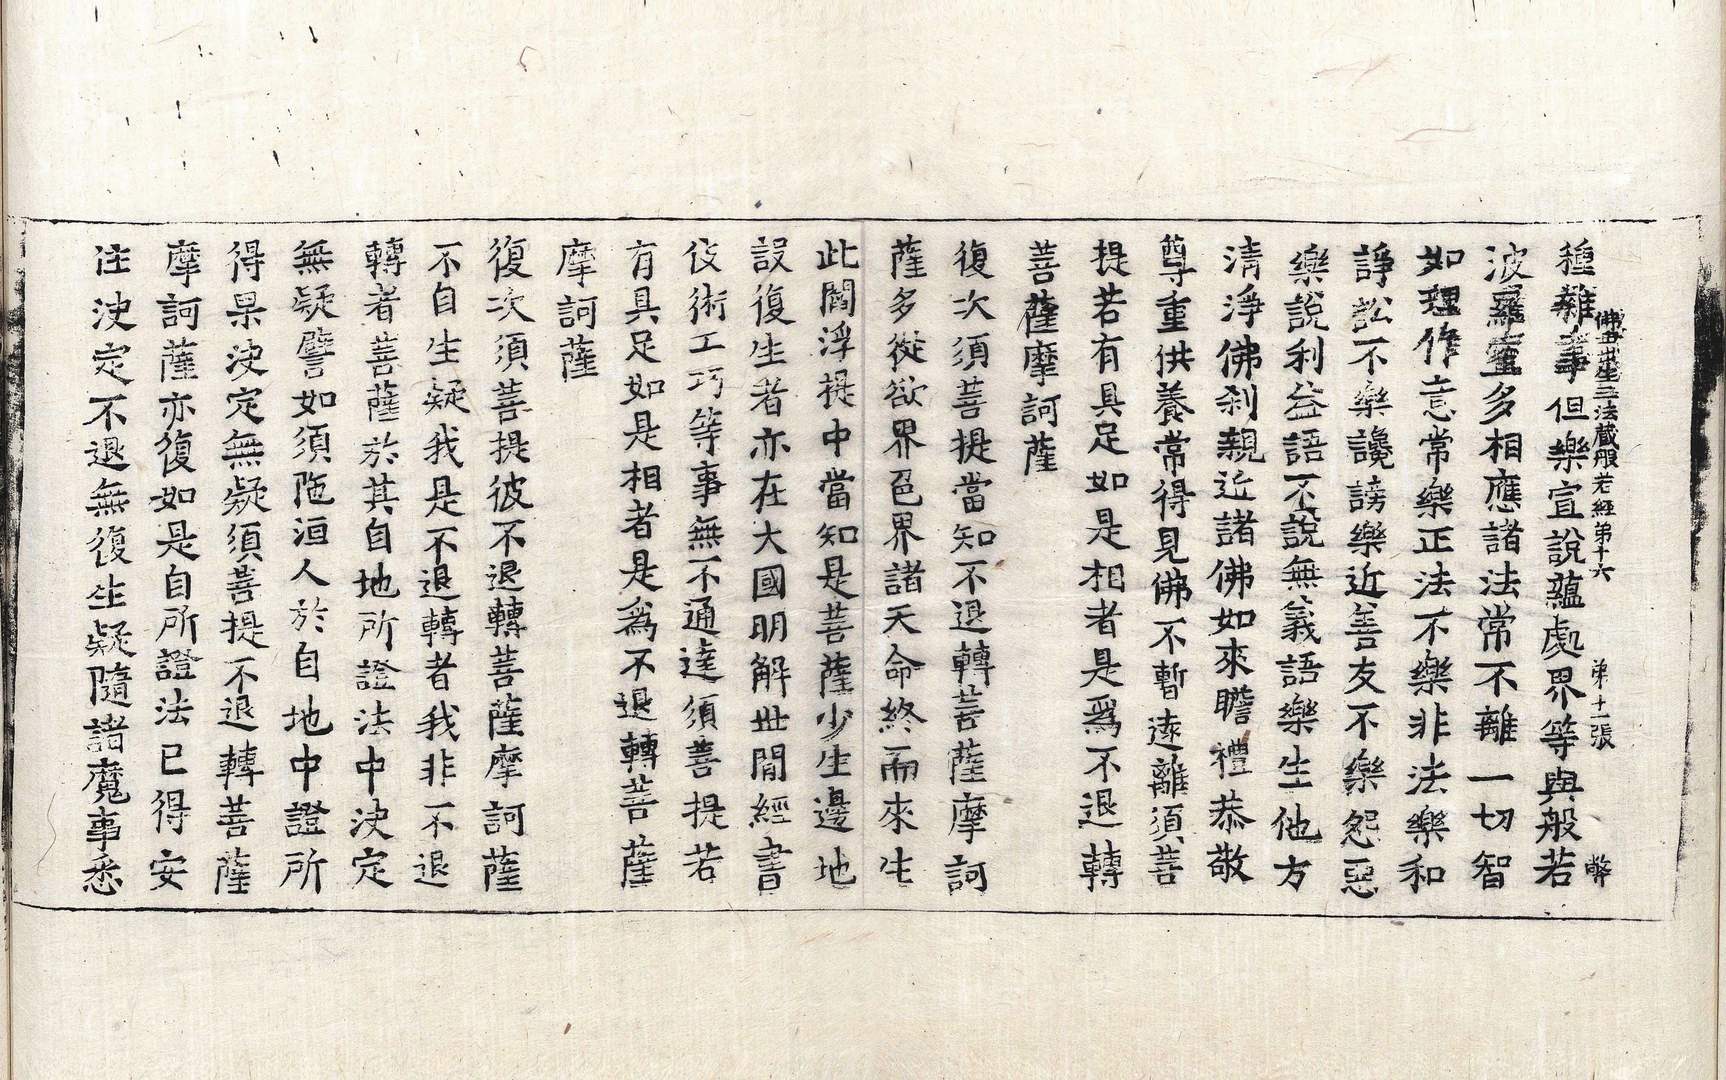 佛母出生三法蔵般若經第十六 弟十一張 幣
種雜事但樂宣說蘊處界等與般若
波羅蜜多相應諸法常不離一切智
如理作意常樂正法不樂非法樂和
諍訟不樂讒謗樂近善友不樂怨惡
樂說利益語不說無義語樂生他方
清淨佛刹親近諸佛如來瞻禮恭敬
尊重供養常得見佛不暫逺離須菩
提若有具足如是相者是爲不退轉
菩薩摩訶薩
復次須菩提當知不退轉菩薩摩訶
薩多從欲界色界諸天命終而來生
此閻浮提中當知是菩薩少生邊地
設復生者亦在大國明解世閒經書
伎術工巧等事無不通達須菩提若
有具足如是相者是爲不退轉菩薩
摩訶薩
復次須菩提彼不退轉菩薩摩訶薩
不自生疑我是不退轉者我非不退
轉者菩薩於其自地所證法中決定
無疑譬如須陁洹人於自地中證所
得果決定無疑須菩提不退轉菩薩
摩訶薩亦復如是自所證法已得安
住決定不退無復生疑隨諸魔事悉